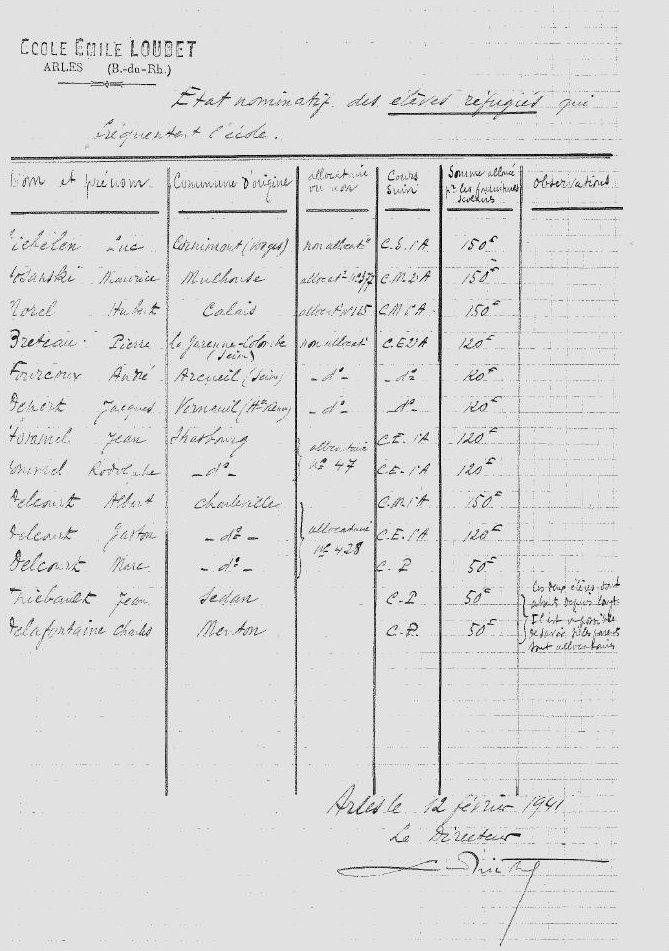 ECOLE EMILE LOUBET
ARLES (B.-du-Rh.)
Etat nominatif des élèves réfugiés qui
fréquentent l'école.
Nom et prénom Commune d'origine allocataire ou non Cours suivi Somme allouée pr les fournitures scolaires Observations
Luc Cornimont (Vosges) non allocatre C.S. 1A 150F
Maurice Mulhouse allocatre No 377 C.M. 2A 150F
Morel Hubert Calais allocatre No 165 C.M 1A 150F
Breteau Pierre La Garenne-Colombe (Seine) non allocatre C.E 2A 120F
Fourcoux André Arcueil (Seine) -do- -do- 120F
Jacques Verneuil (Hte Vienne) -do- -do- 120F
Jean Strasbourg allocataire No 47 C.E. 1A 120F
Rodolphe -do- C.E. 1A 120F
Delcourt Albert Charleville allocataire No 428 C.M. 1A 150F
Delcourt Gaston -do- C.E. 1A 120F
Delcourt Marc -do- C.P. 50F
Thiébault Jean Sedan C.P. 50F
Delafontaine Charles Menton C.P. 50F
Ces deux élèves sont
absents depuis longt.
Il est impossible
de savoir si les parents
sont allocataires
Arles le 12 février 1941
Le Directeur